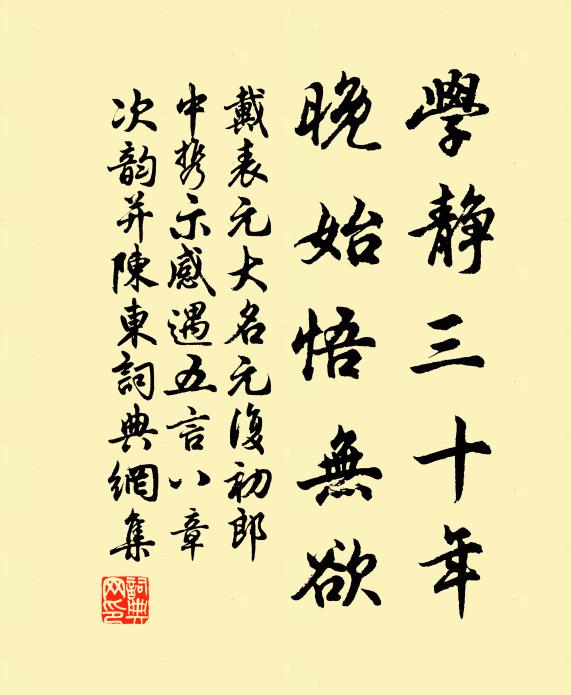 學靜三十年
晚始悟無欲
戴表元大名元復初郎
中携示感遇五言八章
次韵并陳東詞典網集